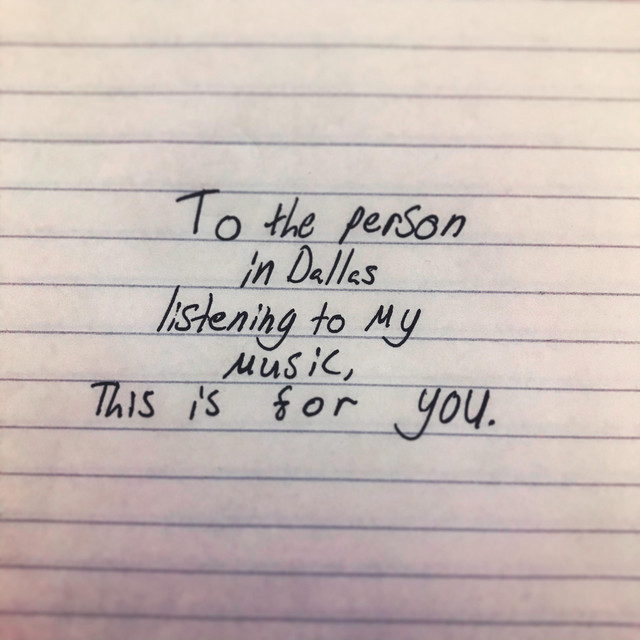 To the person
in Dallas
listening to My
Music,
This is for you.